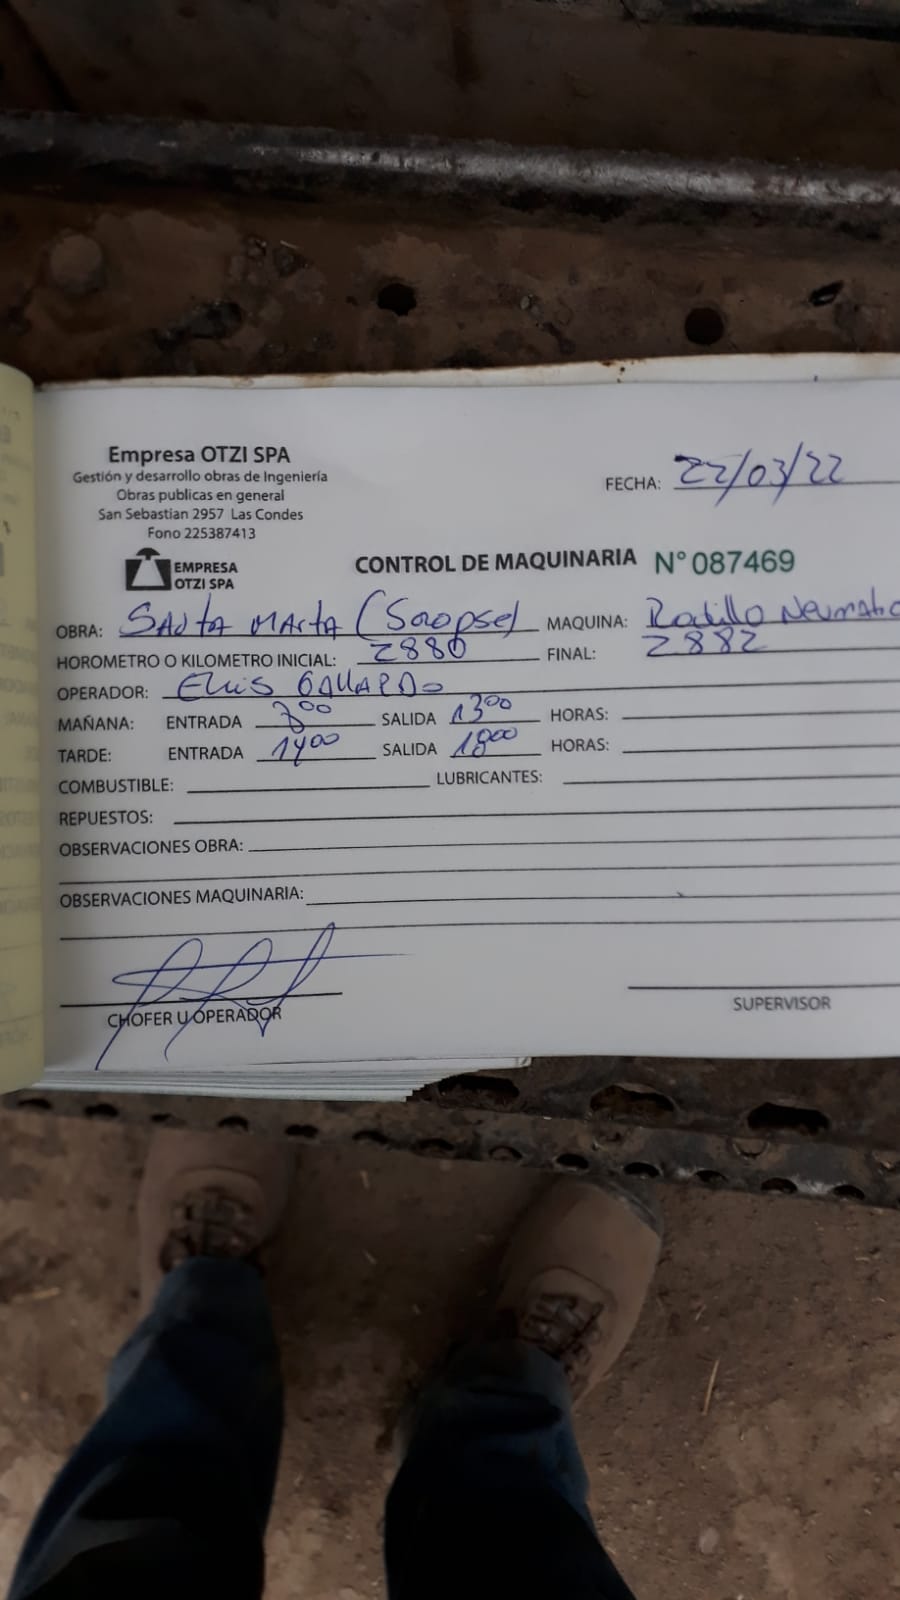 Empresa OTZI SPA
Gestión y desarrollo obras de Ingeniería
Obras publicas en general
San Sebastian 2957 Las Condes
Fono 225387413
FECHA: 22/03/22
EMPRESA
OTZI SPA
CONTROL DE MAQUINARIA N° 087469
OBRA: SANTA MARTA (Soropse) MAQUINA: Rodillo Neumatic
HOROMETRO O KILOMETRO INICIAL: 2880 FINAL: 2882
OPERADOR: ELIIS GALLARDO
MAÑANA: ENTRADA 8 00 SALIDA 13 00 HORAS:
TARDE: ENTRADA 14 00 SALIDA 18 00 HORAS:
COMBUSTIBLE: LUBRICANTES:
REPUESTOS:
OBSERVACIONES OBRA:
OBSERVACIONES MAQUINARIA:
CHOFER U OPERADOR
SUPERVISOR